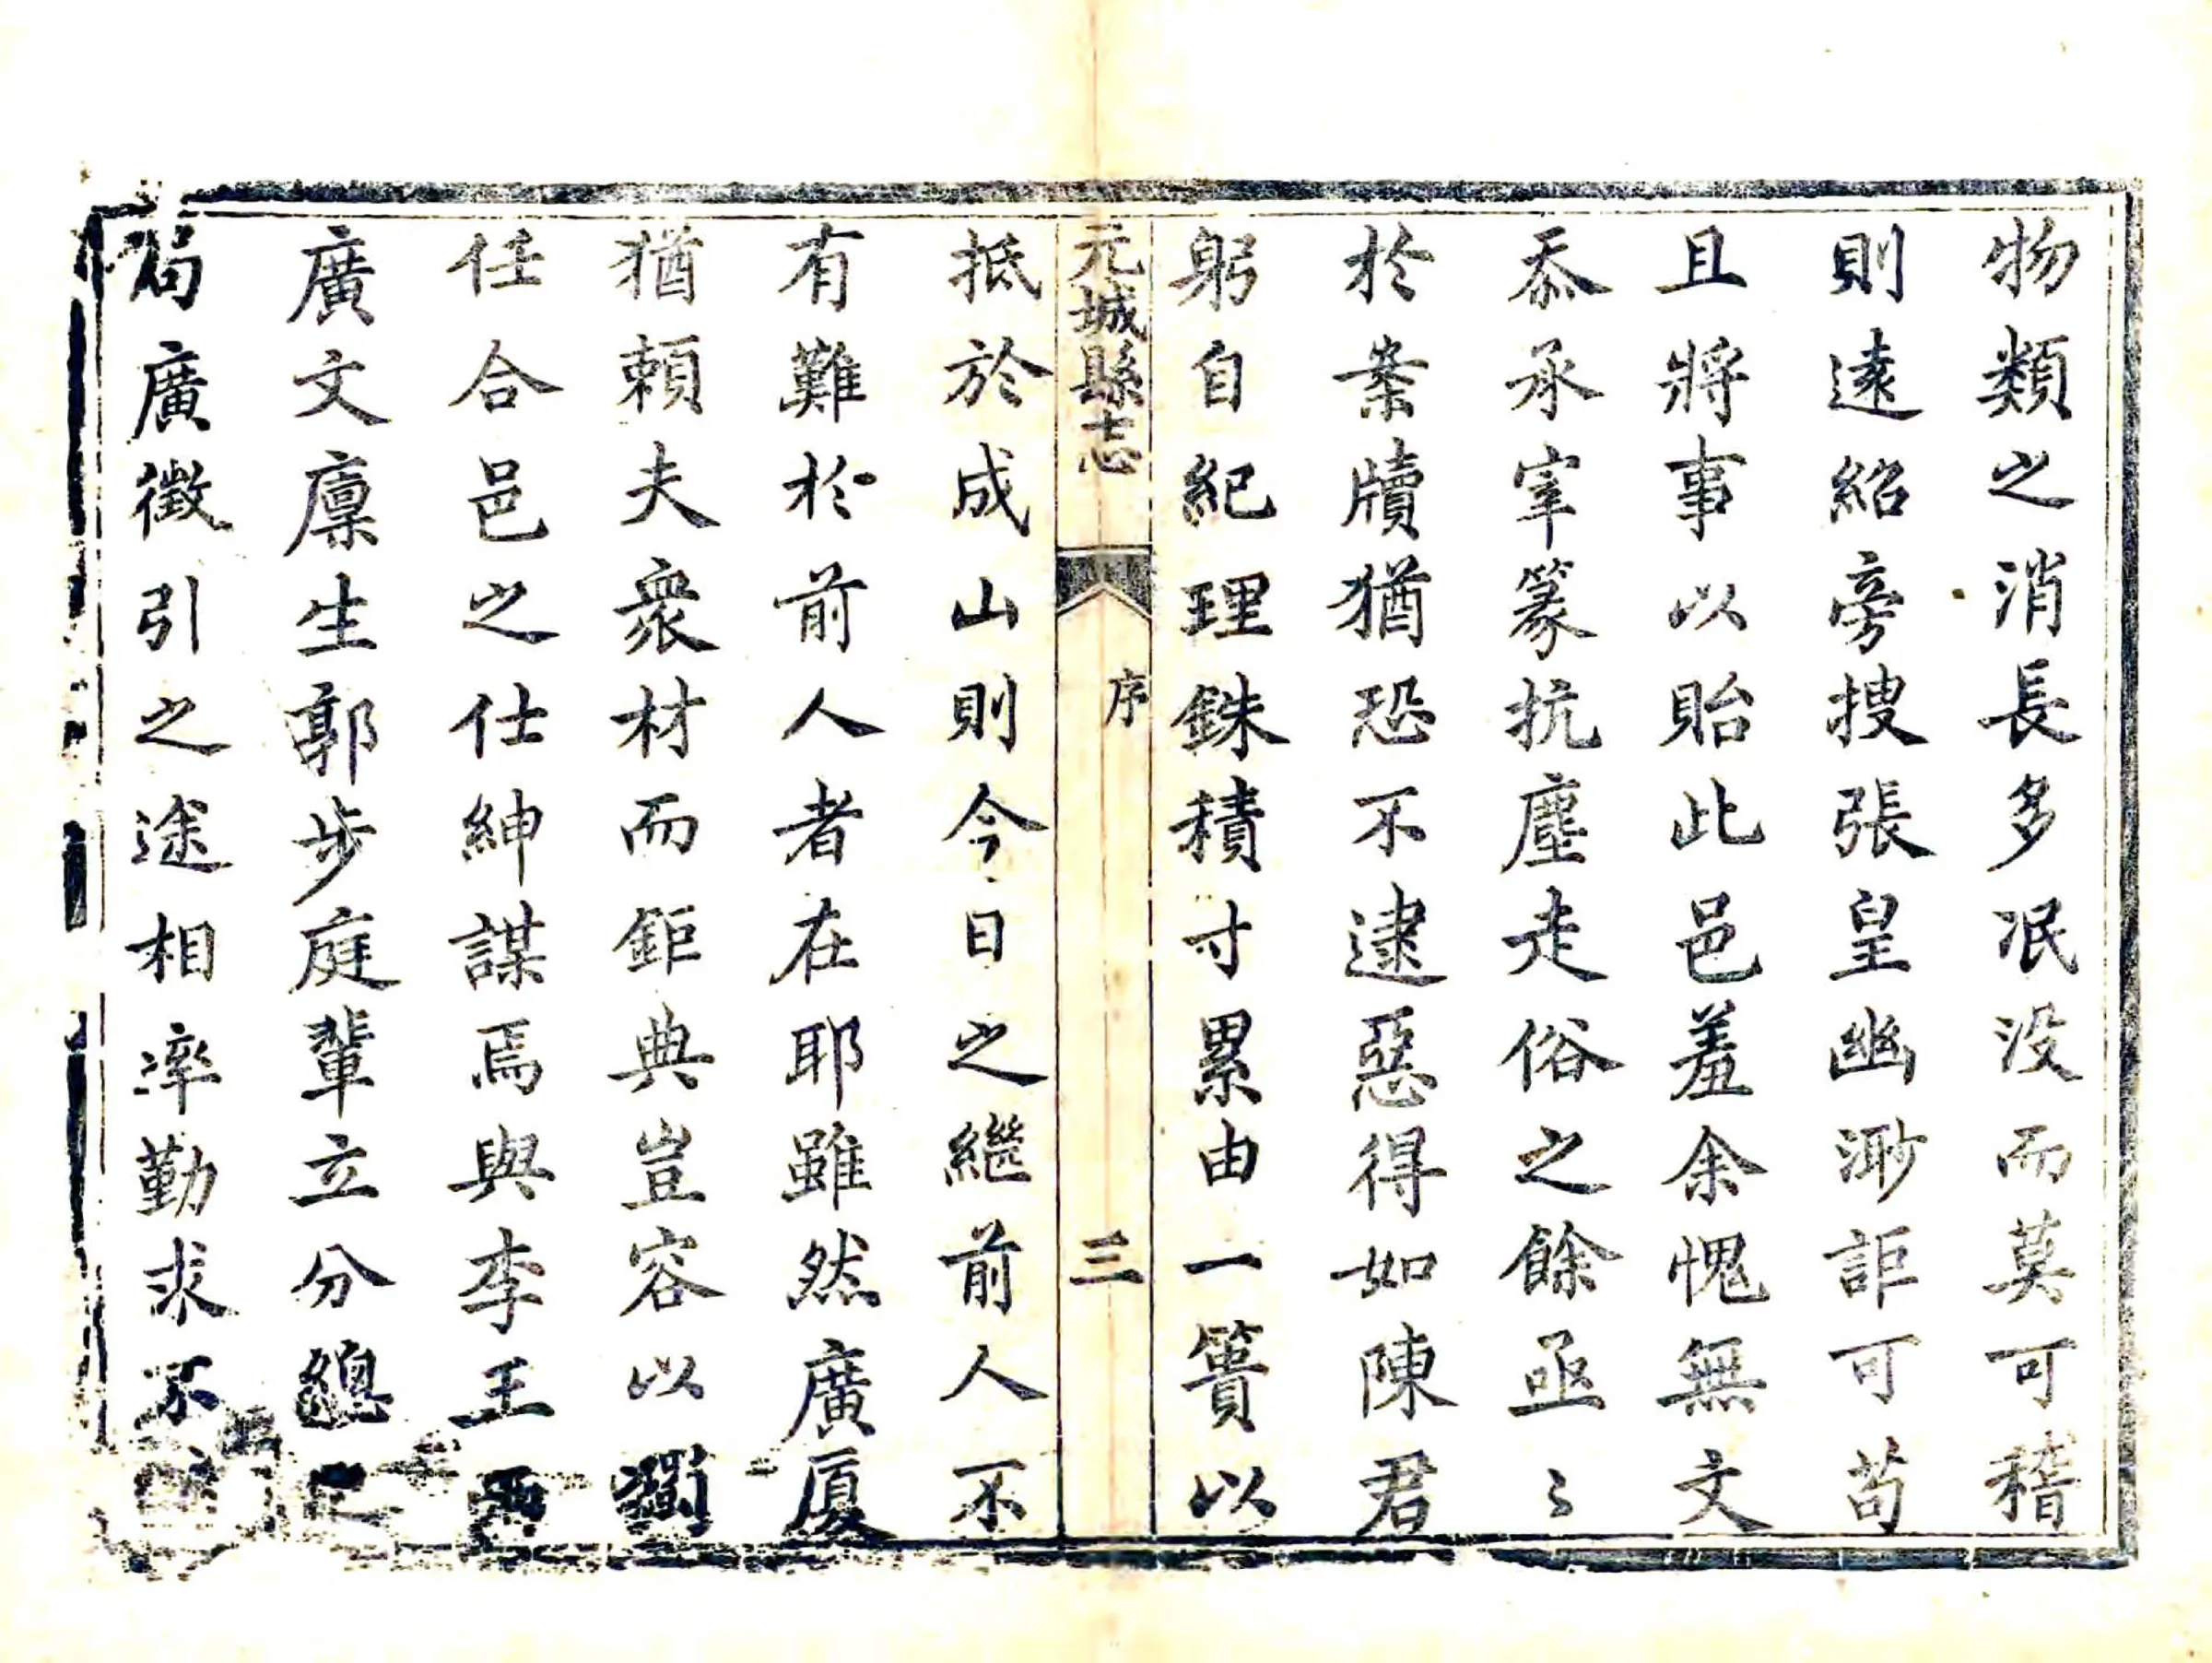 物類之消長多泯没而莫可稽
則遠紹旁搜張皇幽渺詎可苟
且將事以貽此邑羞余愧無文
忝承宰篆抗塵走俗之餘亟〻
於案牘猶恐不逮惡得如陳君
躬自紀理銖積寸累由一簣以
元城縣志
序
三
抵於成山則今日之繼前人不
有難於前人者在耶雖然廣厦
猶賴夫衆材而鉅典豈容以獨
任合邑之仕紳謀焉與李王兩
廣文廪生郭步庭輩立分總
局廣徵引之途相率勤求不